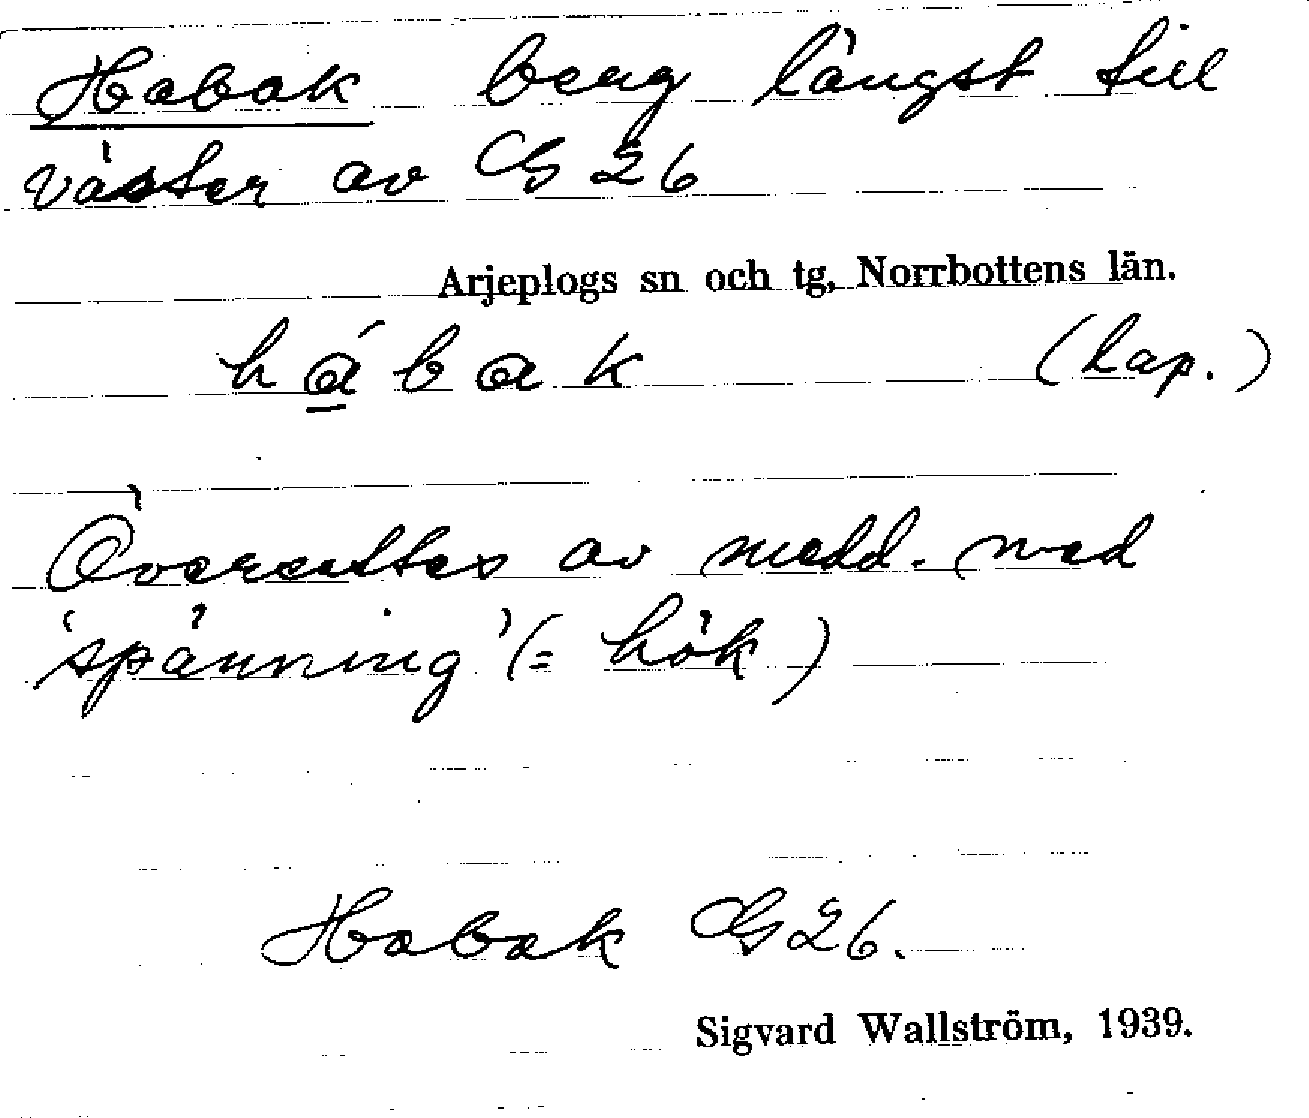 Habak berg längst till
väster av G 26
Arjeplogs sn och tg, Norrbottens län.
há̱bak (Lap.)
Översattes av medd. med
'spänning' (= hök)
Habak G 26.
Sigvard Wallström, 1939.